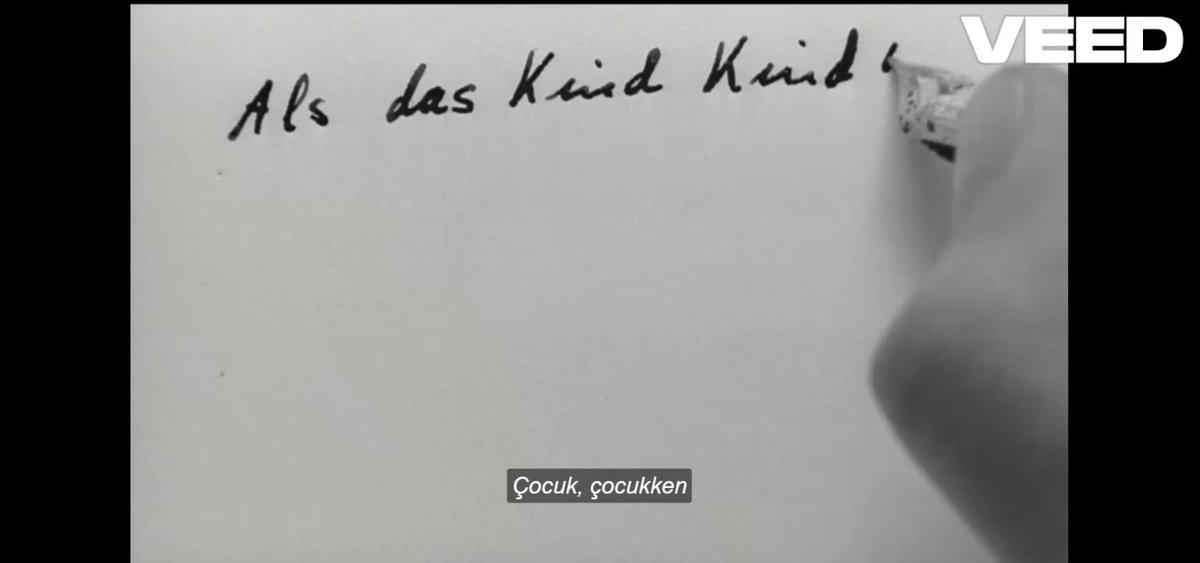 VEED
Als das Kind Kind
Çocuk, çocukken